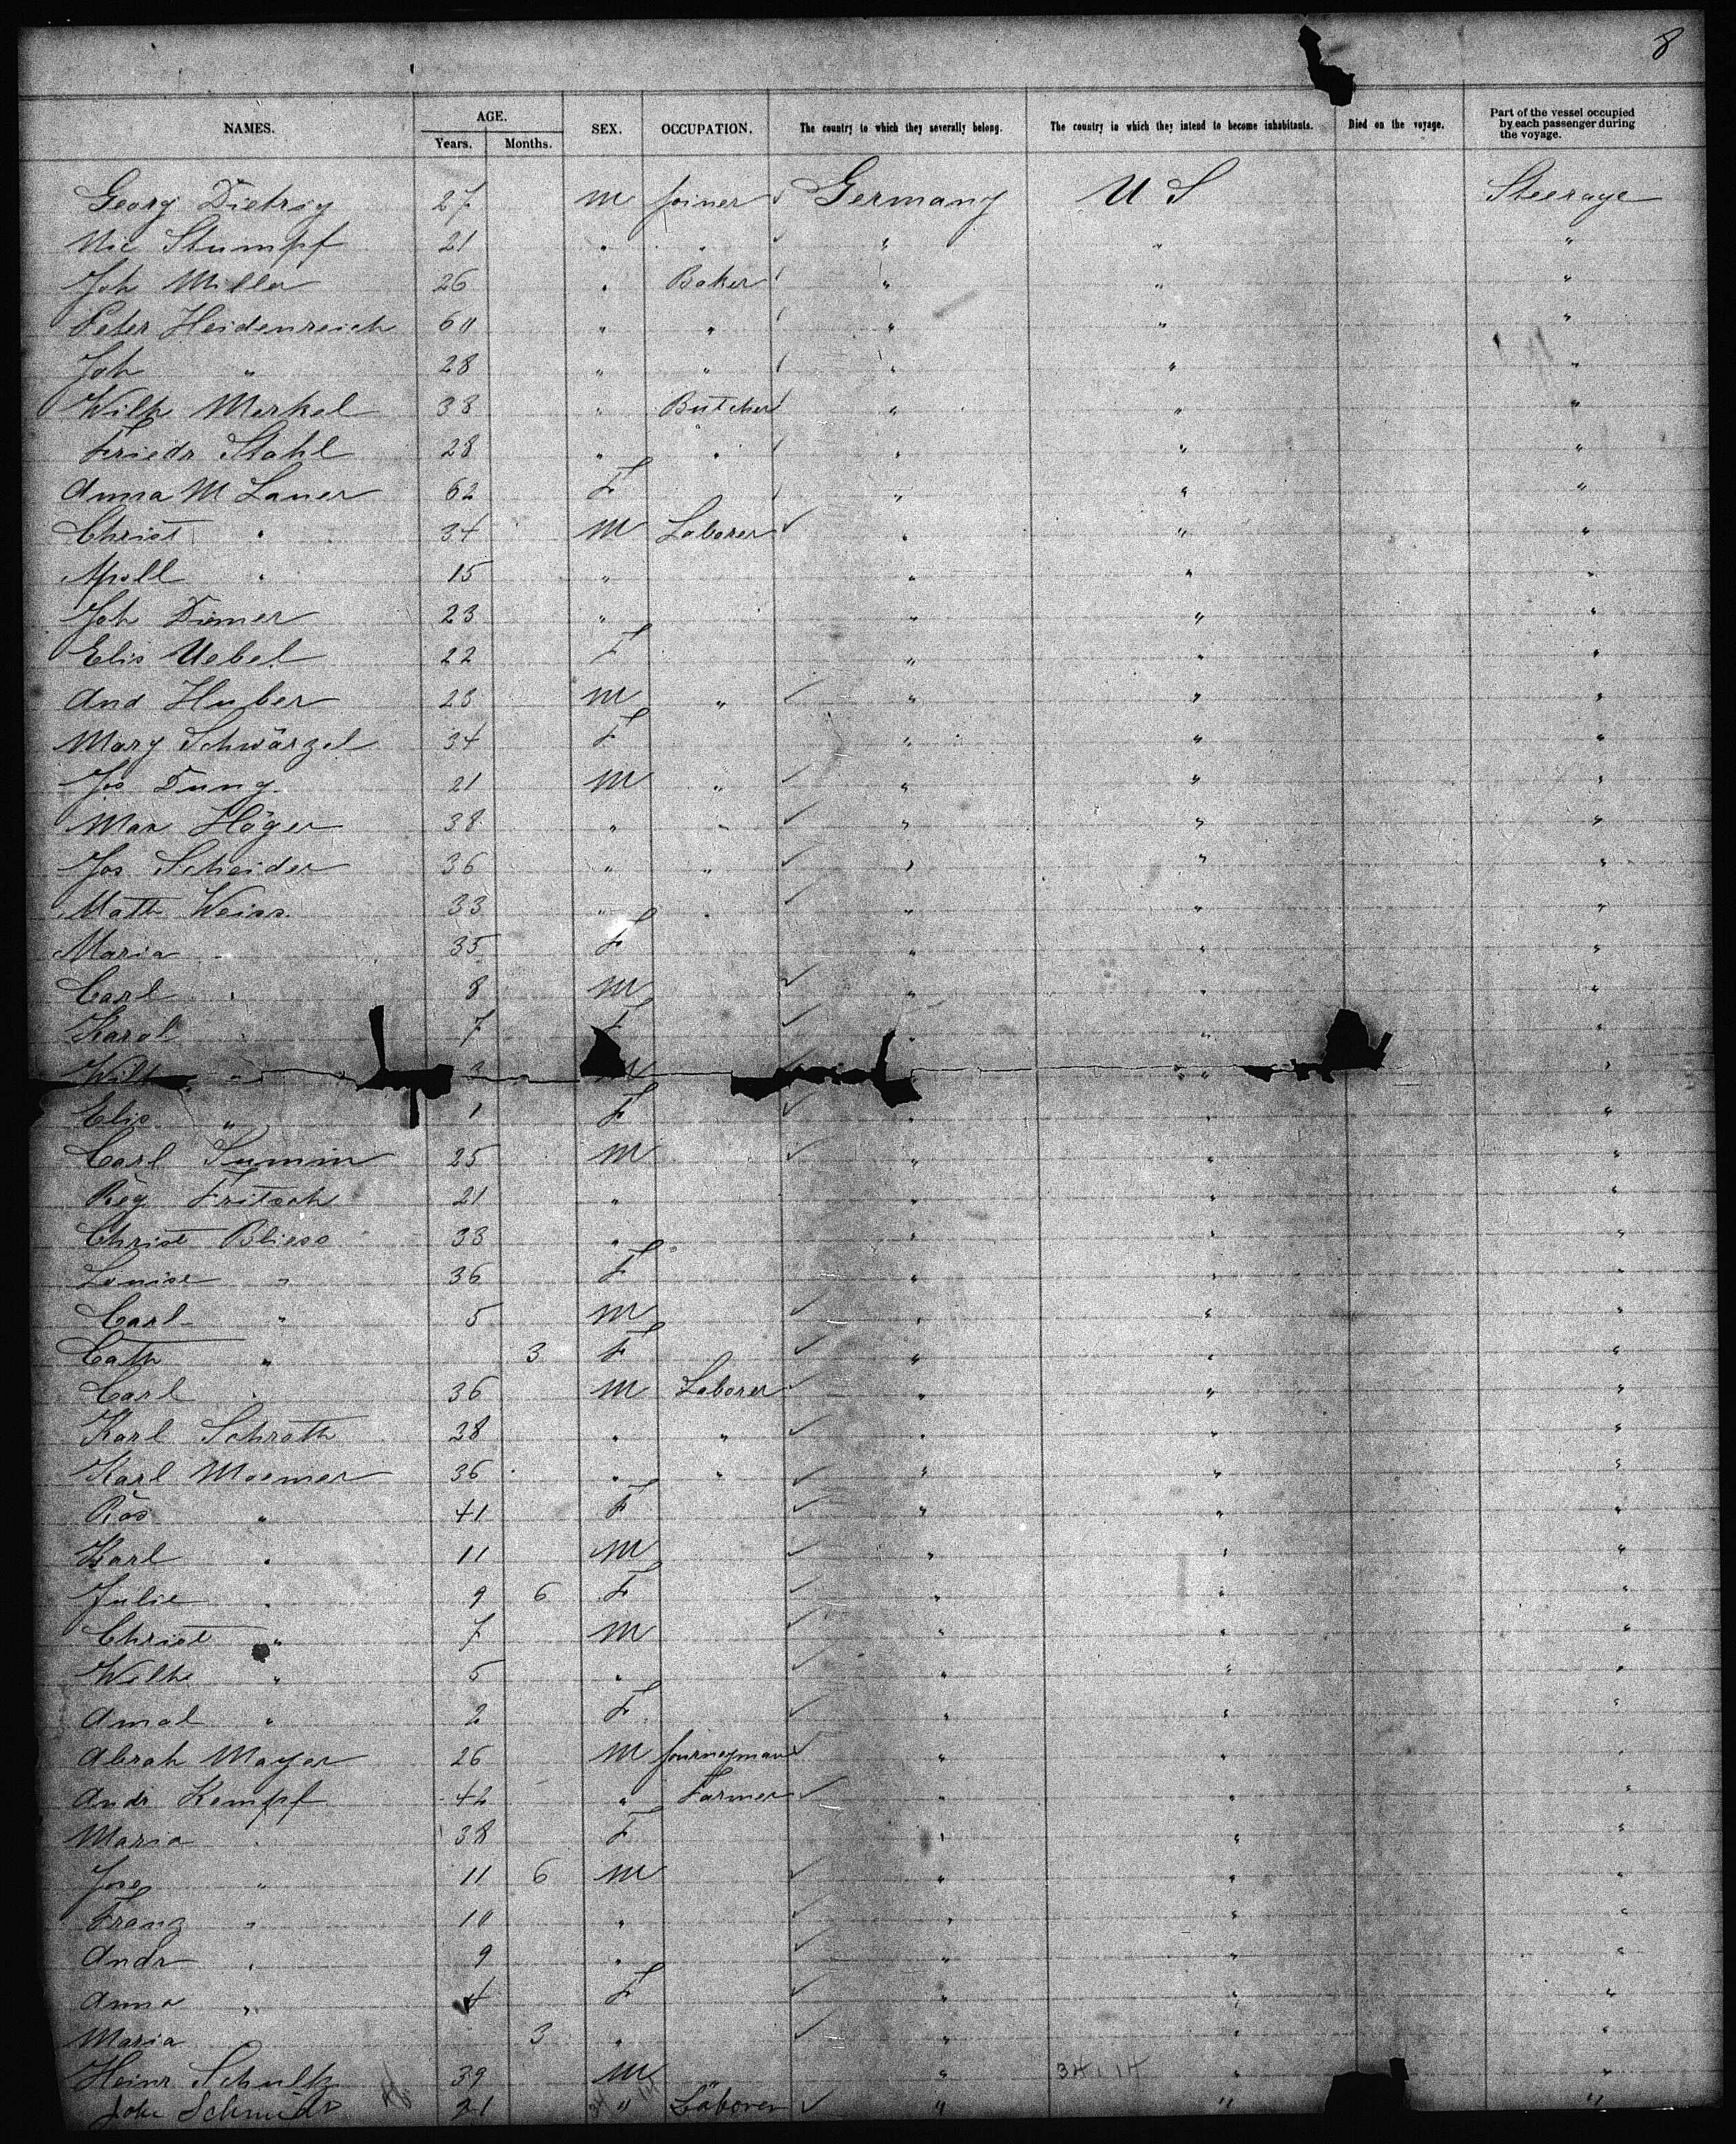 8
NAMES. AGE. Years. Months. SEX. OCCUPATION. The country to which they severally belong. The country in which they intend to become inhabitants. Died on the voyage. Part of the vessel occupied by each passenger during the voyage.
Georg Dietrig 27 M Joiner Germany U S Steerage
Nic Stumpf 21 " " " " "
Joh Miller 26 " Baker " " "
Peter Heidenreich 60 " " " " "
Joh " 28 " " " " "
Wilh Merkel 38 " Butcher " " "
Friedr Stahl 28 " " " " "
Anna M Lauer 62 F " " "
Christ " 34 M Laborer " " "
Apoll " 15 " " " "
Joh Diemer 23 " " " "
Elis Uebel 22 F " " "
And Huber 28 M " " " "
Marg Schwärzel 34 F " " "
Jos Dung 21 M " " " "
Max Höger 38 " " " " "
Jos Scheider 36 " " " " "
Math Weiss 33 " " " " "
Maria 35 F " " "
Carl " 8 M " " "
Karol " 7 F " " "
Wilh " 3 M " " "
Elis " 1 F " " "
Carl 25 M " " "
Reg Fritsch 21 " " " "
Christ Bliess 33 " " " "
Louise " 36 F " " "
Carl " 5 M " " "
Cath " 3 F " " "
Carl " 36 M Laborer " " "
Karl Schroth 28 " " " " "
Karl Moemer 36 " " " " "
Ros " 41 F " " "
Karl " 11 M " " "
Julie " 9 6 F " " "
Christ " 7 M " " "
Wilh " 5 " " " "
Amal " 2 F " " "
Abrah Mayer 26 M Journeyman " " "
Andr Kempf 42 " Farmer " " "
Maria " 38 F " " "
Jos " 11 6 M " " "
Franz " 10 " " " "
Andr " 9 " " " "
Anna " 4 F " " "
Maria 3 " " " "
Heinr Schultz 39 M " " 34 14 " "
John Schmidt 21 " Laborer " " "